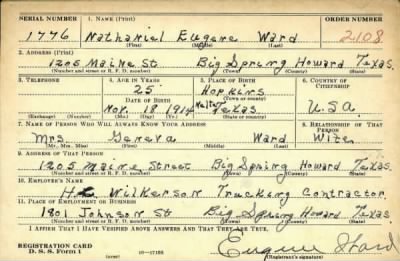 SERIAL NUMBER 1. NAME (Print) ORDER NUMBER
1776 Nathaniel Eugene Ward 2108
(First) (Middle) (Last)
2. ADDRESS (Print)
1205 Maine St Big Spring Howard Texas.
(Number and street or R. F. D. number) (Town) (County) (State)
3. TELEPHONE 4. AGE IN YEARS 5. PLACE OF BIRTH 6. COUNTRY OF CITIZENSHIP
25 Hopkins
DATE OF BIRTH (Town or county)
Nov. 18 1914 Texas. U.S.A.
(Exchange) (Number) (Mo.) (Day) (Yr.) (State or country)
7. NAME OF PERSON WHO WILL ALWAYS KNOW YOUR ADDRESS 8. RELATIONSHIP OF THAT PERSON
Mrs Geneva Ward Wife.
(Mr., Mrs., Miss) (First) (Middle) (Last)
9. ADDRESS OF THAT PERSON
1205 Maine Street Big Spring Howard Texas.
(Number and street or R. F. D. number) (Town) (County) (State)
10. EMPLOYER'S NAME
H.C. Wilkerson Trucking Contractor
11. PLACE OF EMPLOYMENT OR BUSINESS
1801 Johnson St Big Spring Howard Texas.
(Number and street or R. F. D. number) (Town) (County) (State)
I AFFIRM THAT I HAVE VERIFIED ABOVE ANSWERS AND THAT THEY ARE TRUE.
REGISTRATION CARD
D. S. S. Form 1 16—17105 Eugene Ward
(Registrant's signature)